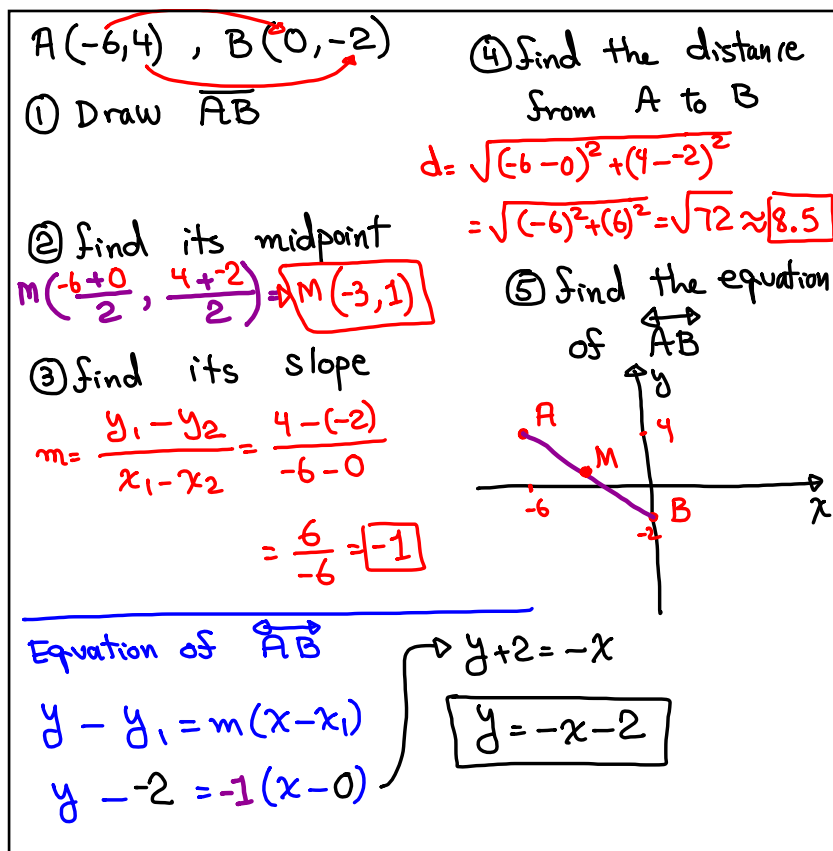 A(-6,4) , B(0,-2)
① Draw \overline{AB}
② find its midpoint
m(\frac{-6+0}{2}, \frac{4+-2}{2}) ⇒ M(-3,1)
③ find its slope
m= \frac{y₁-y₂}{x₁-x₂} = \frac{4-(-2)}{-6-0}
= \frac{6}{-6} = -1
④ find the distance
from A to B
d= \sqrt{(-6-0)²+(4--2)²}
= \sqrt{(-6)²+(6)²} = \sqrt{72} ≈ 8.5
⑤ find the equation
of \overleftrightarrow{AB}
y
A
4
M
-6
B
x
-2
Equation of \overleftrightarrow{AB}
y - y₁ = m(x-x₁)
y - -2 = -1(x-0)
y+2=-x
y=-x-2